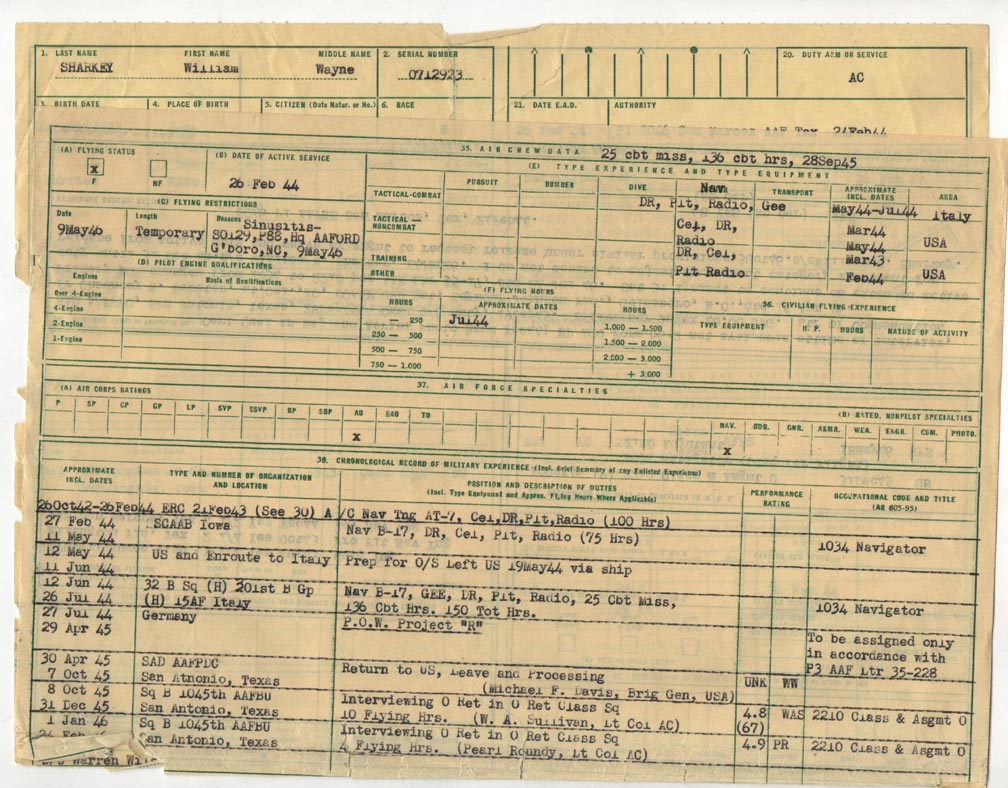 1. LAST NAME FIRST NAME MIDDLE NAME 2. SERIAL NUMBER 20. DUTY ARM OR SERVICE
SHARKEY William Wayne 0712923 AC
3. BIRTH DATE 4. PLACE OF BIRTH 5. CITIZEN (Date Natur. or No.) 6. RACE 21. DATE E.A.D. AUTHORITY
24Feb44
35. AIR CREW DATA 25 cbt miss, 136 cbt hrs, 28Sep45
(A) FLYING STATUS (B) DATE OF ACTIVE SERVICE (E) TYPE EXPERIENCE AND TYPE EQUIPMENT
X
F NF 26 Feb 44
PURSUIT BOMBER DIVE Nav TRANSPORT APPROXIMATE INCL. DATES AREA
TACTICAL-COMBAT DR, Plt, Radio, Gee May44-Jul44 Italy
(C) FLYING RESTRICTIONS
Date Length Reasons
9May46 Temporary Sinusitis-
SO129,P88,Hq AAFORD
G'boro,NC, 9May46
TACTICAL—NONCOMBAT Cel, DR, Radio Mar44 May44 USA
TRAINING DR, Cel, Plt Radio Mar43 Feb44 USA
OTHER
(D) PILOT ENGINE QUALIFICATIONS
Engines Basis of Qualifications
Over 4-Engine
4-Engine
2-Engine
1-Engine
(F) FLYING HOURS
HOURS APPROXIMATE DATES HOURS
— 250 Jul44 1.000 — 1.500
250 — 500 1.500 — 2.000
500 — 750 2.000 — 3.000
750 — 1.000 + 3.000
36. CIVILIAN FLYING EXPERIENCE
TYPE EQUIPMENT H. P. HOURS NATURE OF ACTIVITY
37. AIR FORCE SPECIALTIES
(A) AIR CORPS RATINGS (B) RATED, NONPILOT SPECIALTIES
P SP CP GP LP SVP SSVP BP SBP AO SAO TO NAV. BDB. GNR. ARMR. WEA. ENGR. COM. PHOTO.
X X
38. CHRONOLOGICAL RECORD OF MILITARY EXPERIENCE (Incl. Brief Summary of any Enlisted Experience)
APPROXIMATE INCL. DATES TYPE AND NUMBER OF ORGANIZATION AND LOCATION POSITION AND DESCRIPTION OF DUTIES (Incl. Type Equipment and Approx. Flying Hours Where Applicable) PERFORMANCE RATING OCCUPATIONAL CODE AND TITLE (AR 605-95)
26Oct42-26Feb44 ERC 21Feb43 (See 30) A/C Nav Tng AT-7, Cel,DR,Plt,Radio (100 Hrs)
27 Feb 44 SCAAB Iowa Nav B-17, DR, Cel, Plt, Radio (75 Hrs)
11 May 44 1034 Navigator
12 May 44 US and Enroute to Italy Prep for O/S Left US 19May44 via ship
11 Jun 44
12 Jun 44 32 B Sq (H) 201st B Gp Nav B-17, GEE, DR, Plt, Radio, 25 Cbt Miss,
26 Jul 44 (H) 15AF Italy 136 Cbt Hrs. 150 Tot Hrs. 1034 Navigator
27 Jul 44 Germany P.O.W. Project "R"
29 Apr 45 To be assigned only
in accordance with
P3 AAF Ltr 35-228
30 Apr 45 SAD AAFPDC Return to US, Leave and Processing
7 Oct 45 San Atnonio, Texas (Michael F. Davis, Brig Gen, USA) UNK WW
8 Oct 45 Sq B 1045th AAFBU Interviewing O Ret in O Ret Class Sq
31 Dec 45 San Antonio, Texas 10 Flying Hrs. (W. A. Sullivan, Lt Col AC) 4.8 (67) WAS 2210 Class & Asgmt O
1 Jan 46 Sq B 1045th AAFBU Interviewing O Ret in O Ret Class Sq
24 Feb San Antonio, Texas 4 Flying Hrs. (Pearl Roundy, Lt Col AC) 4.9 PR 2210 Class & Asgmt O
Warren